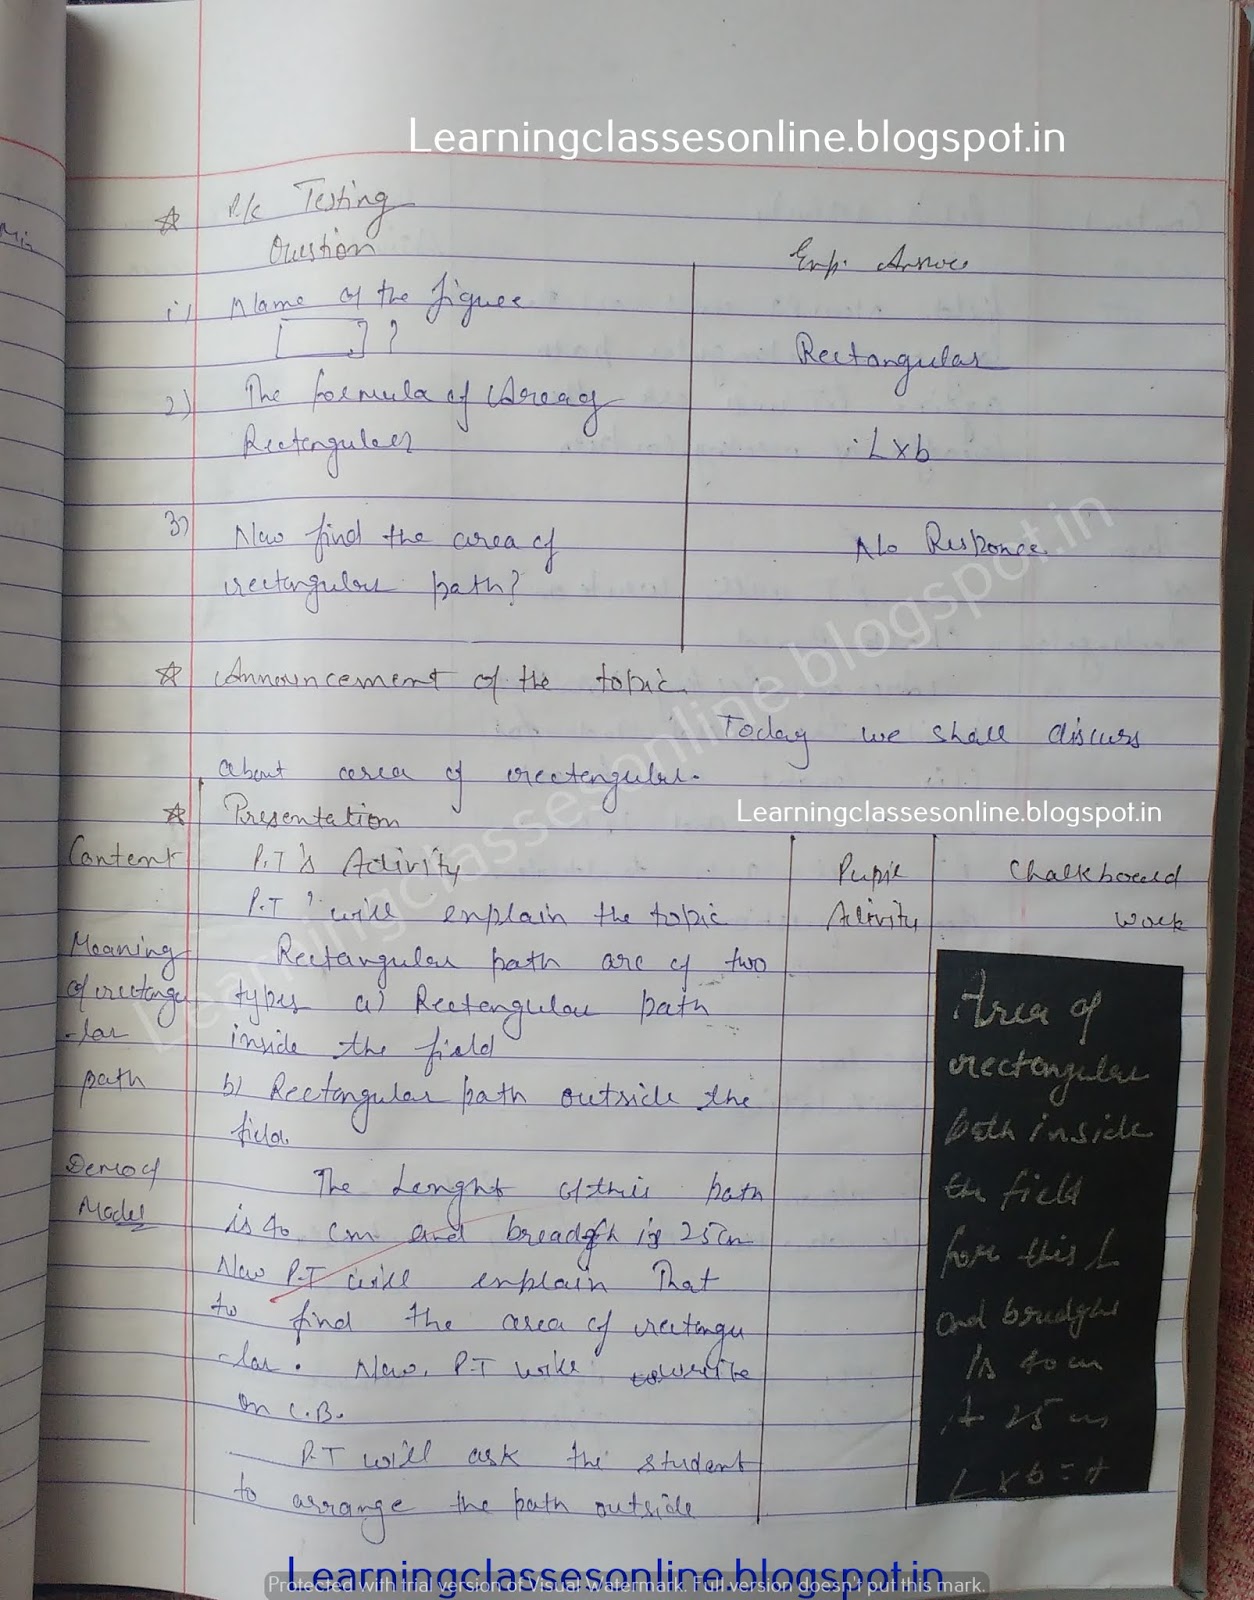 Learningclassesonline.blogspot.in
P/K Testing
Question
Exp. Answer
i) Name of the figure
?
Rectangular
2) The formula of Area of
Rectanguler
L×b
3) Now find the area of
rectangular path?
No Responce
Announcement of the topic.
Today we shall discuss
about area of rectangular.
Presentation
Learningclassesonline.blogspot.in
Content
P.T's Activity
Pupil
Activity
Chalkboard
work
P.T' will explain the topic
Meaning
of rectangu
-lar
path
Rectangular path are of two
types a) Rectangular path
inside the field
b) Rectangular path outside the
field.
Demo of
Model
The Lenght of this path
is 40 cm and breadgth is 25cm
Now P.T will explain That
to find the area of rectangu
-lar. Now, P.T will write
on C.B.
P.T will ask the student
to arrange the path outside
Area of
rectangular
path inside
the field
for this L
and breadght
is 40 cm
25 cm
L × b = A
Learningclassesonline.blogspot.in
Learningclassesonline.blogspot.in
Protected with trial version of Visual Watermark. Full version doesn't put this mark.